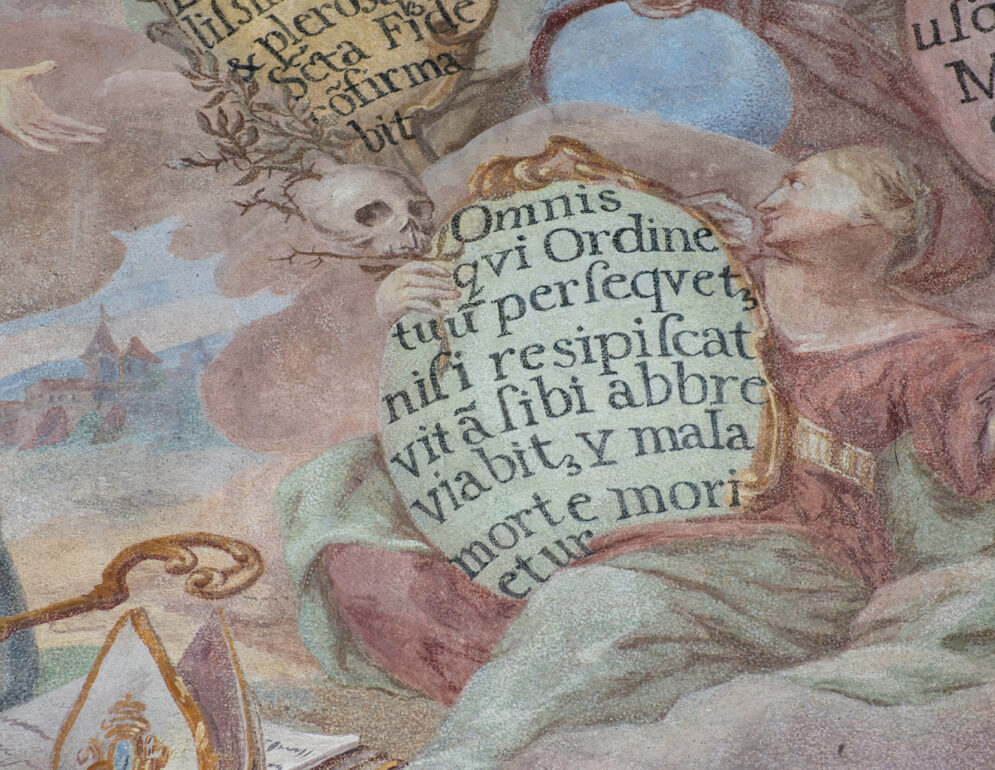 & plerosq
Scta Fide
cõfirma
bit
Omnis
qvi Ordine
tuũ perſeqvetꝫ
niſi resipiſcat
vitã ſibi abbre
viabitꝫ y mala
morte mori
etur
M